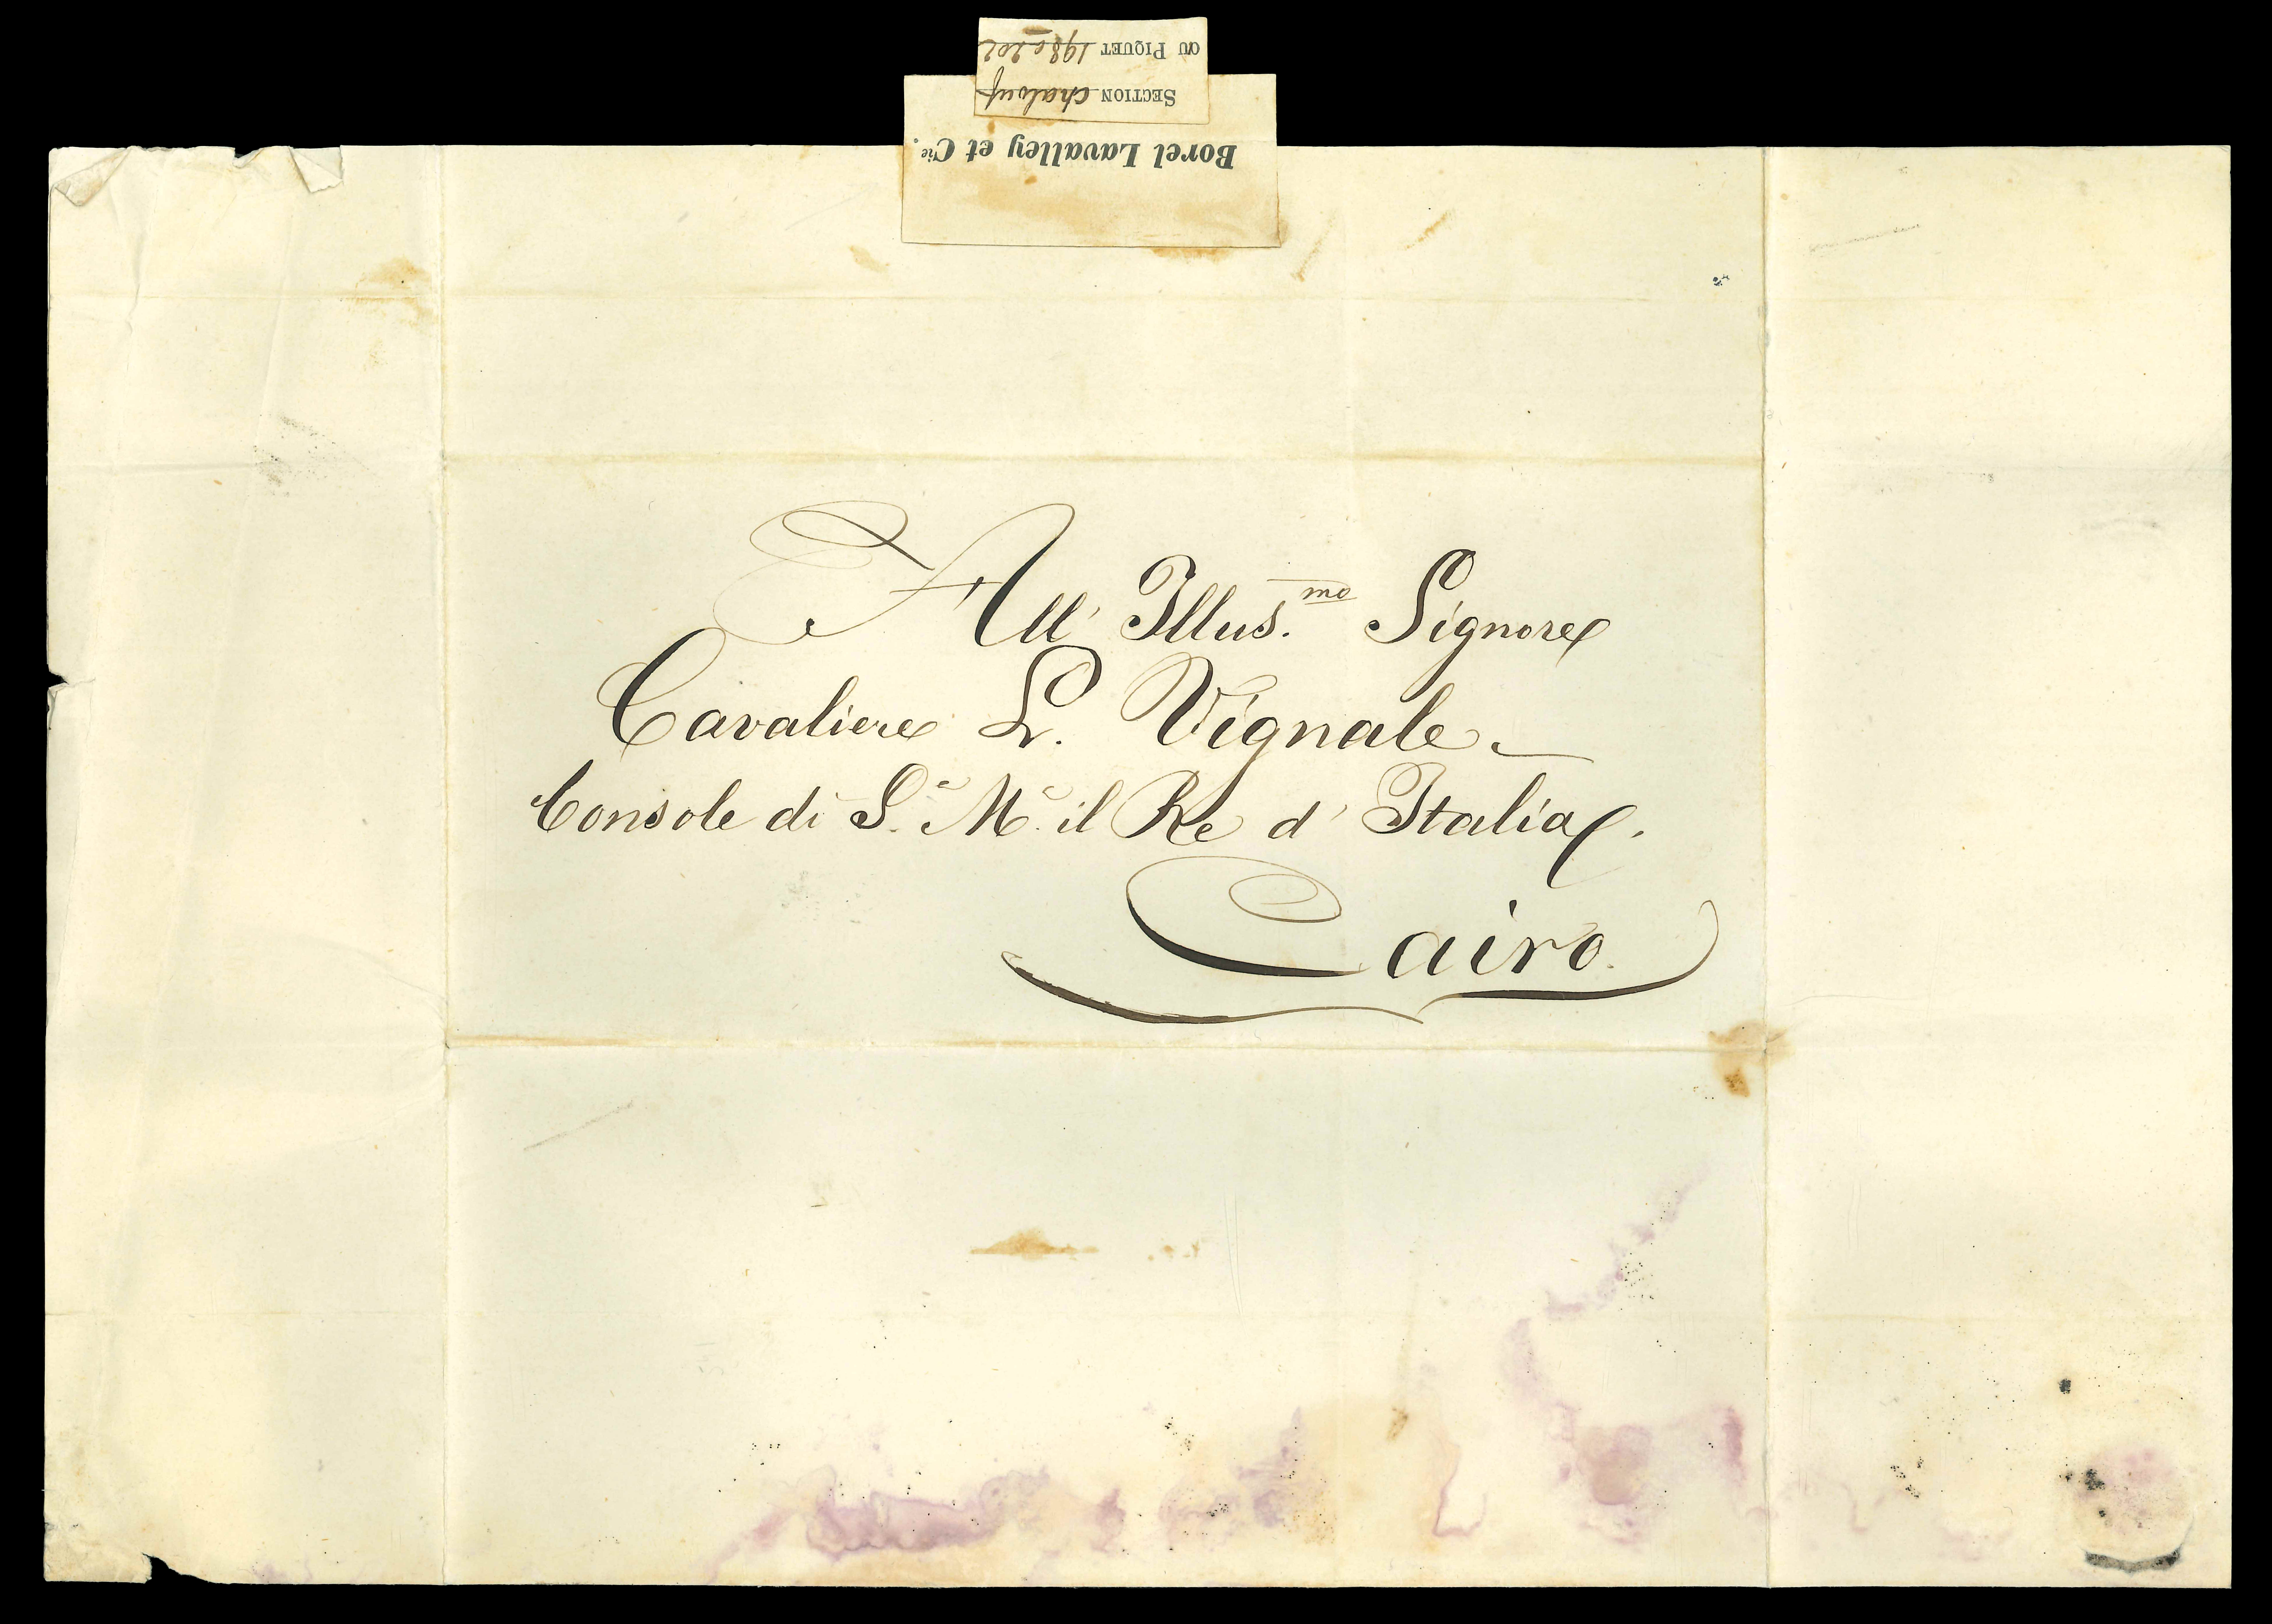 Borel Lavalley et Cie.
SECTION Chalouf
OU PIQUET 198 à 202
All' Illus.mo Signore
Cavaliere L. Vignale
Console di S.a M.a il Re d' Italia.
Cairo.